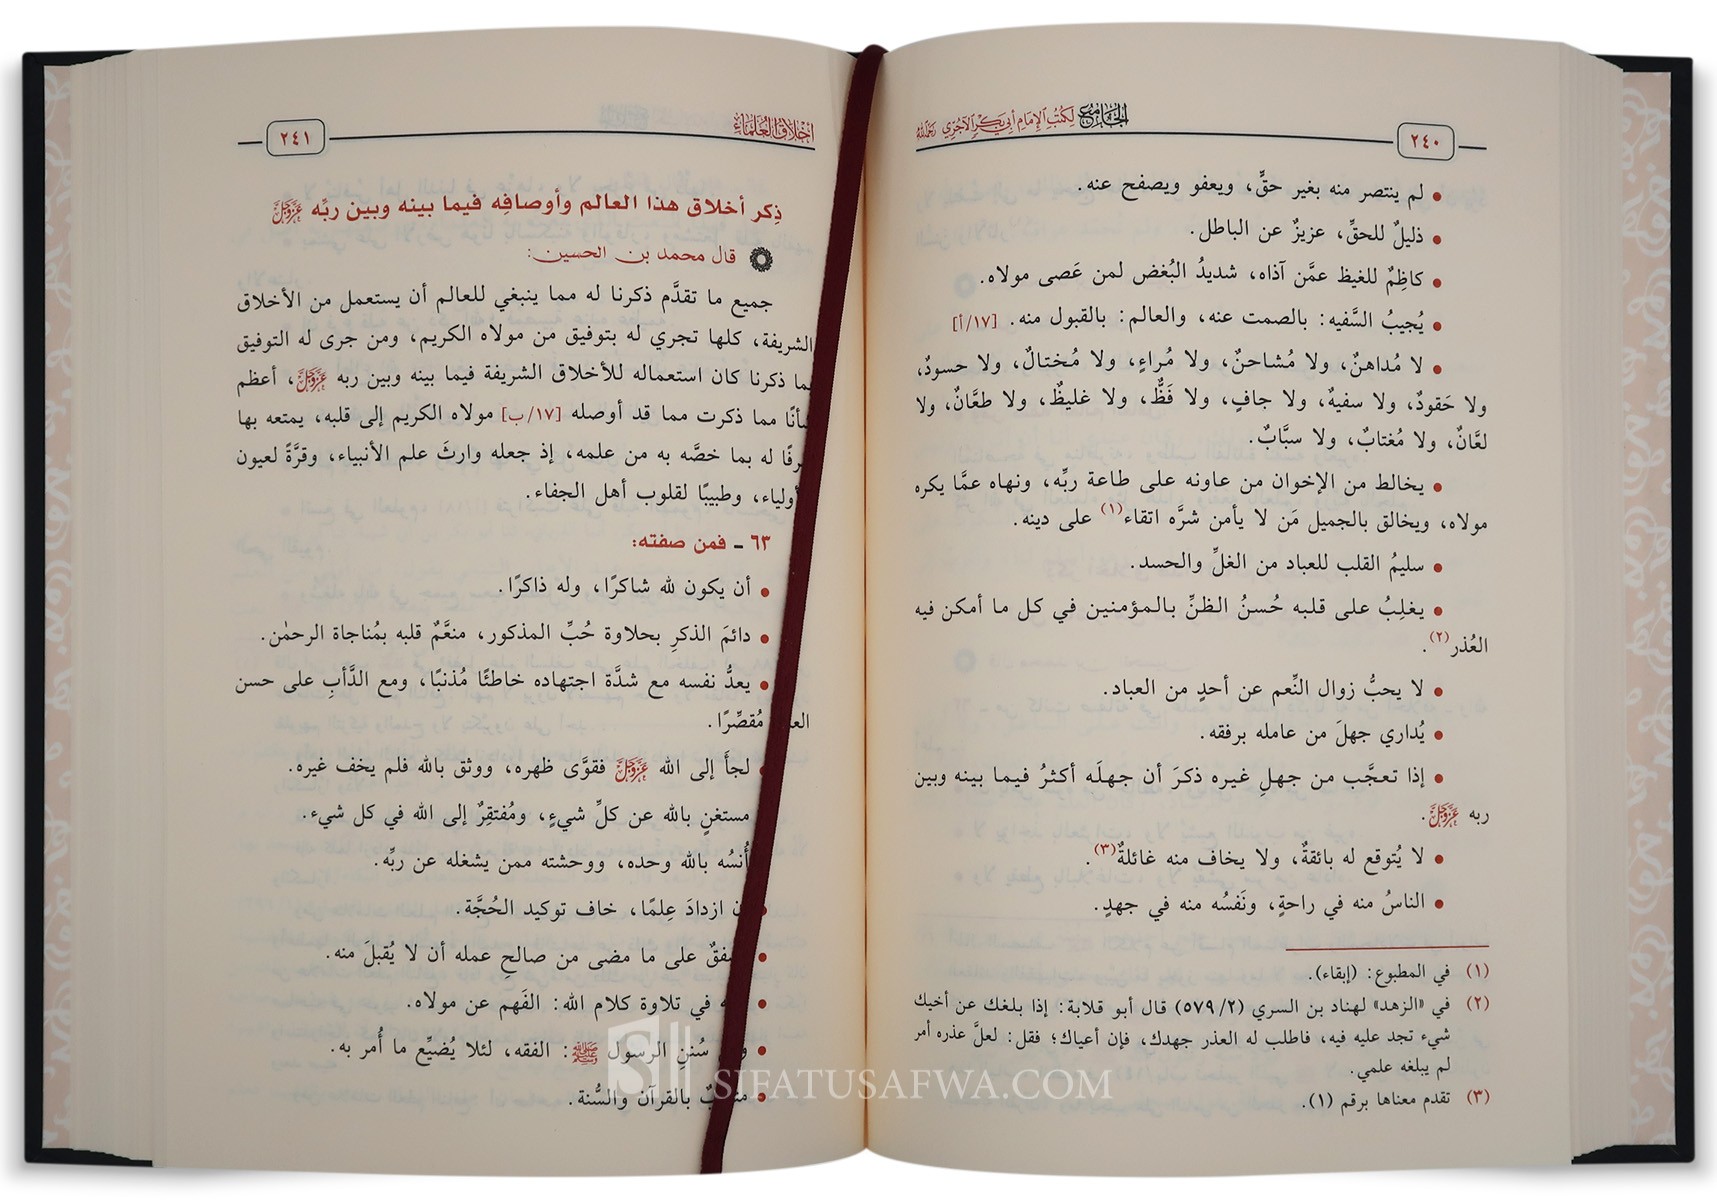 ٢٤٠
الجامع لكتب الإمام أبي بكر الآجري رحمه الله
• لم ينتصر منه بغير حقٍّ، ويعفو ويصفح عنه.
• ذليلٌ للحقِّ، عزيزٌ عن الباطل.
• كاظِمٌ للغيظ عمَّن آذاه، شديدُ البُغض لمن عَصى مولاه.
• يُجيبُ السَّفيه: بالصمت عنه، والعالم: بالقبول منه. [١٧/أ]
• لا مُداهنٌ، ولا مُشاحنٌ، ولا مُراءٍ، ولا مُختالٌ، ولا حسودٌ،
ولا حَقودٌ، ولا سفيهٌ، ولا جافٍ، ولا فَظٌّ، ولا غليظٌ، ولا طعَّانٌ، ولا
لعَّانٌ، ولا مُغتابٌ، ولا سبَّابٌ.
• يخالط من الإخوان من عاونه على طاعة ربِّه، ونهاه عمَّا يكره
مولاه، ويخالق بالجميل مَن لا يأمن شرَّه اتقاء(١) على دينه.
• سليمُ القلب للعباد من الغلِّ والحسد.
• يغلِبُ على قلبه حُسنُ الظنِّ بالمؤمنين في كل ما أمكن فيه
العُذر(٢).
• لا يحبُّ زوال النِّعم عن أحدٍ من العباد.
• يُداري جهلَ من عامله برفقه.
• إذا تعجَّب من جهلِ غيره ذكرَ أن جهلَه أكثرُ فيما بينه وبين
ربه عز وجل.
• لا يُتوقع له بائقةٌ، ولا يخاف منه غائلةٌ(٣).
• الناسُ منه في راحةٍ، ونَفسُه منه في جهدٍ.
(١) في المطبوع: (إبقاء).
(٢) في «الزهد» لهناد بن السري (٥٧٩/٢) قال أبو قلابة: إذا بلغك عن أخيك
شيء تجد عليه فيه، فاطلب له العذر جهدك، فإن أعياك؛ فقل: لعلَّ عذره أمر
لم يبلغه علمي.
(٣) تقدم معناها برقم (١).
أخلاق العلماء
٢٤١
ذِكر أخلاق هذا العالم وأوصافِه فيما بينه وبين ربِّه عز وجل
قال محمد بن الحسين:
جميع ما تقدَّم ذكرنا له مما ينبغي للعالم أن يستعمل من الأخلاق
الشريفة، كلها تجري له بتوفيق من مولاه الكريم، ومن جرى له التوفيق
ما ذكرنا كان استعماله للأخلاق الشريفة فيما بينه وبين ربه عز وجل، أعظم
مما ذكرت مما قد أوصله [١٧/ب] مولاه الكريم إلى قلبه، يمتعه بها
له بما خصَّه به من علمه، إذ جعله وارثَ علم الأنبياء، وقرَّةً لعيون
وطبيبًا لقلوب أهل الجفاء.
٦٣ ـ فمن صفته:
• أن يكون لله شاكرًا، وله ذاكرًا.
• دائمَ الذكرِ بحلاوة حُبِّ المذكور، منعَّمٌ قلبه بمُناجاة الرحمٰن.
• يعدُّ نفسه مع شدَّة اجتهاده خاطئًا مُذنبًا، ومع الدَّأبِ على حسن
مُقصِّرًا.
• لجأَ إلى الله عز وجل فقوَّى ظهره، ووثق بالله فلم يخف غيره.
مستغنٍ بالله عن كلِّ شيءٍ، ومُفتقِرٌ إلى الله في كل شيء.
أُنسُه بالله وحده، ووحشته ممن يشغله عن ربِّه.
• ازدادَ عِلمًا، خاف توكيد الحُجَّة.
• على ما مضى من صالحِ عمله أن لا يُقبلَ منه.
• في تلاوة كلام الله: الفَهم عن مولاه.
• سُننِ الرسول ﷺ: الفقه، لئلا يُضيِّع ما أُمر به.
• بالقرآن والسُّنة.
SIFATUSAFWA.COM